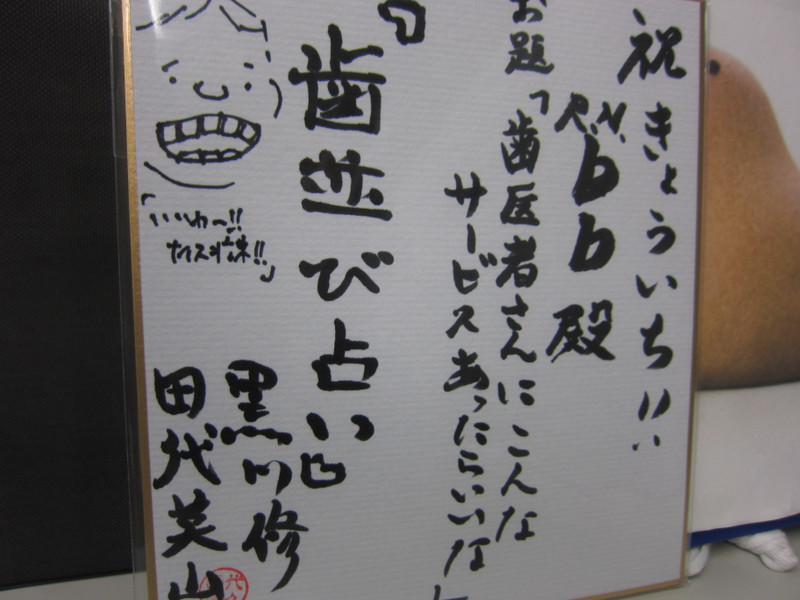 祝きょういち!!
R.N.bb殿
お題「歯医者さんにこんな
サービスあったらいいな」
『歯並び占い』
黒川修
田代英山
「いいわ〜!!
ナイス林!!」